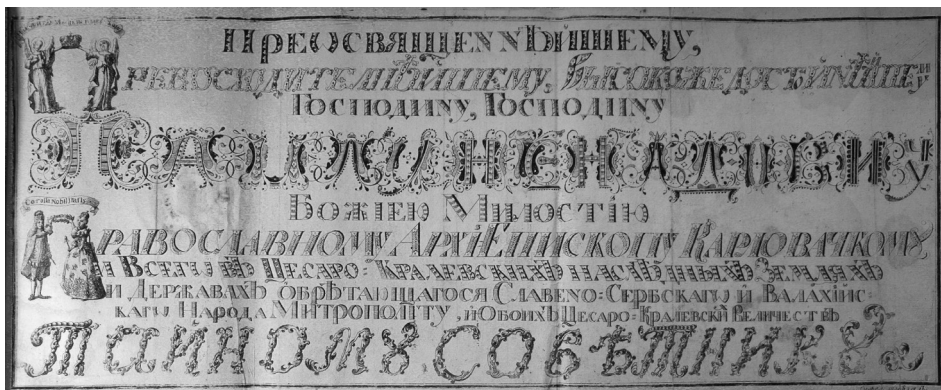 ПРЕОСВЯЩЕННѢЙШЕМУ,
ПРЕВОСХОДИТЕЛНѢЙШЕМУ,
ГОСПОДИНУ, ГОСПОДИНУ
ПАѴЛУ НЕНАДОВИЧУ
БОЖІЕЮ МИЛОСТІЮ
ПРАВОСЛАВНОМУ АРХІЕПИСКОПУ КАРЛОВАЧКОМꙊ
И ВСЕГѠ ВЪ ЦЕСАРО=КРАЛЕВСКИХЪ НАСЛѢДНЫХЪ ЗЕМЛЯХЪ
И ДЕРЖАВАХЪ ОБРѢТАЮЩАГОСЯ СЛАВЕНО=СЕРБСКАГѠ И ВАЛАХІЙС-
КАГѠ НАРОДА МИТРОПОЛИТУ, И ОБОИХЪ ЦЕСАРО=КРАЛЕВСКИ ВЕЛИЧЕСТВЪ
ТАЙНОМꙊ СОВѢТНИКꙊ